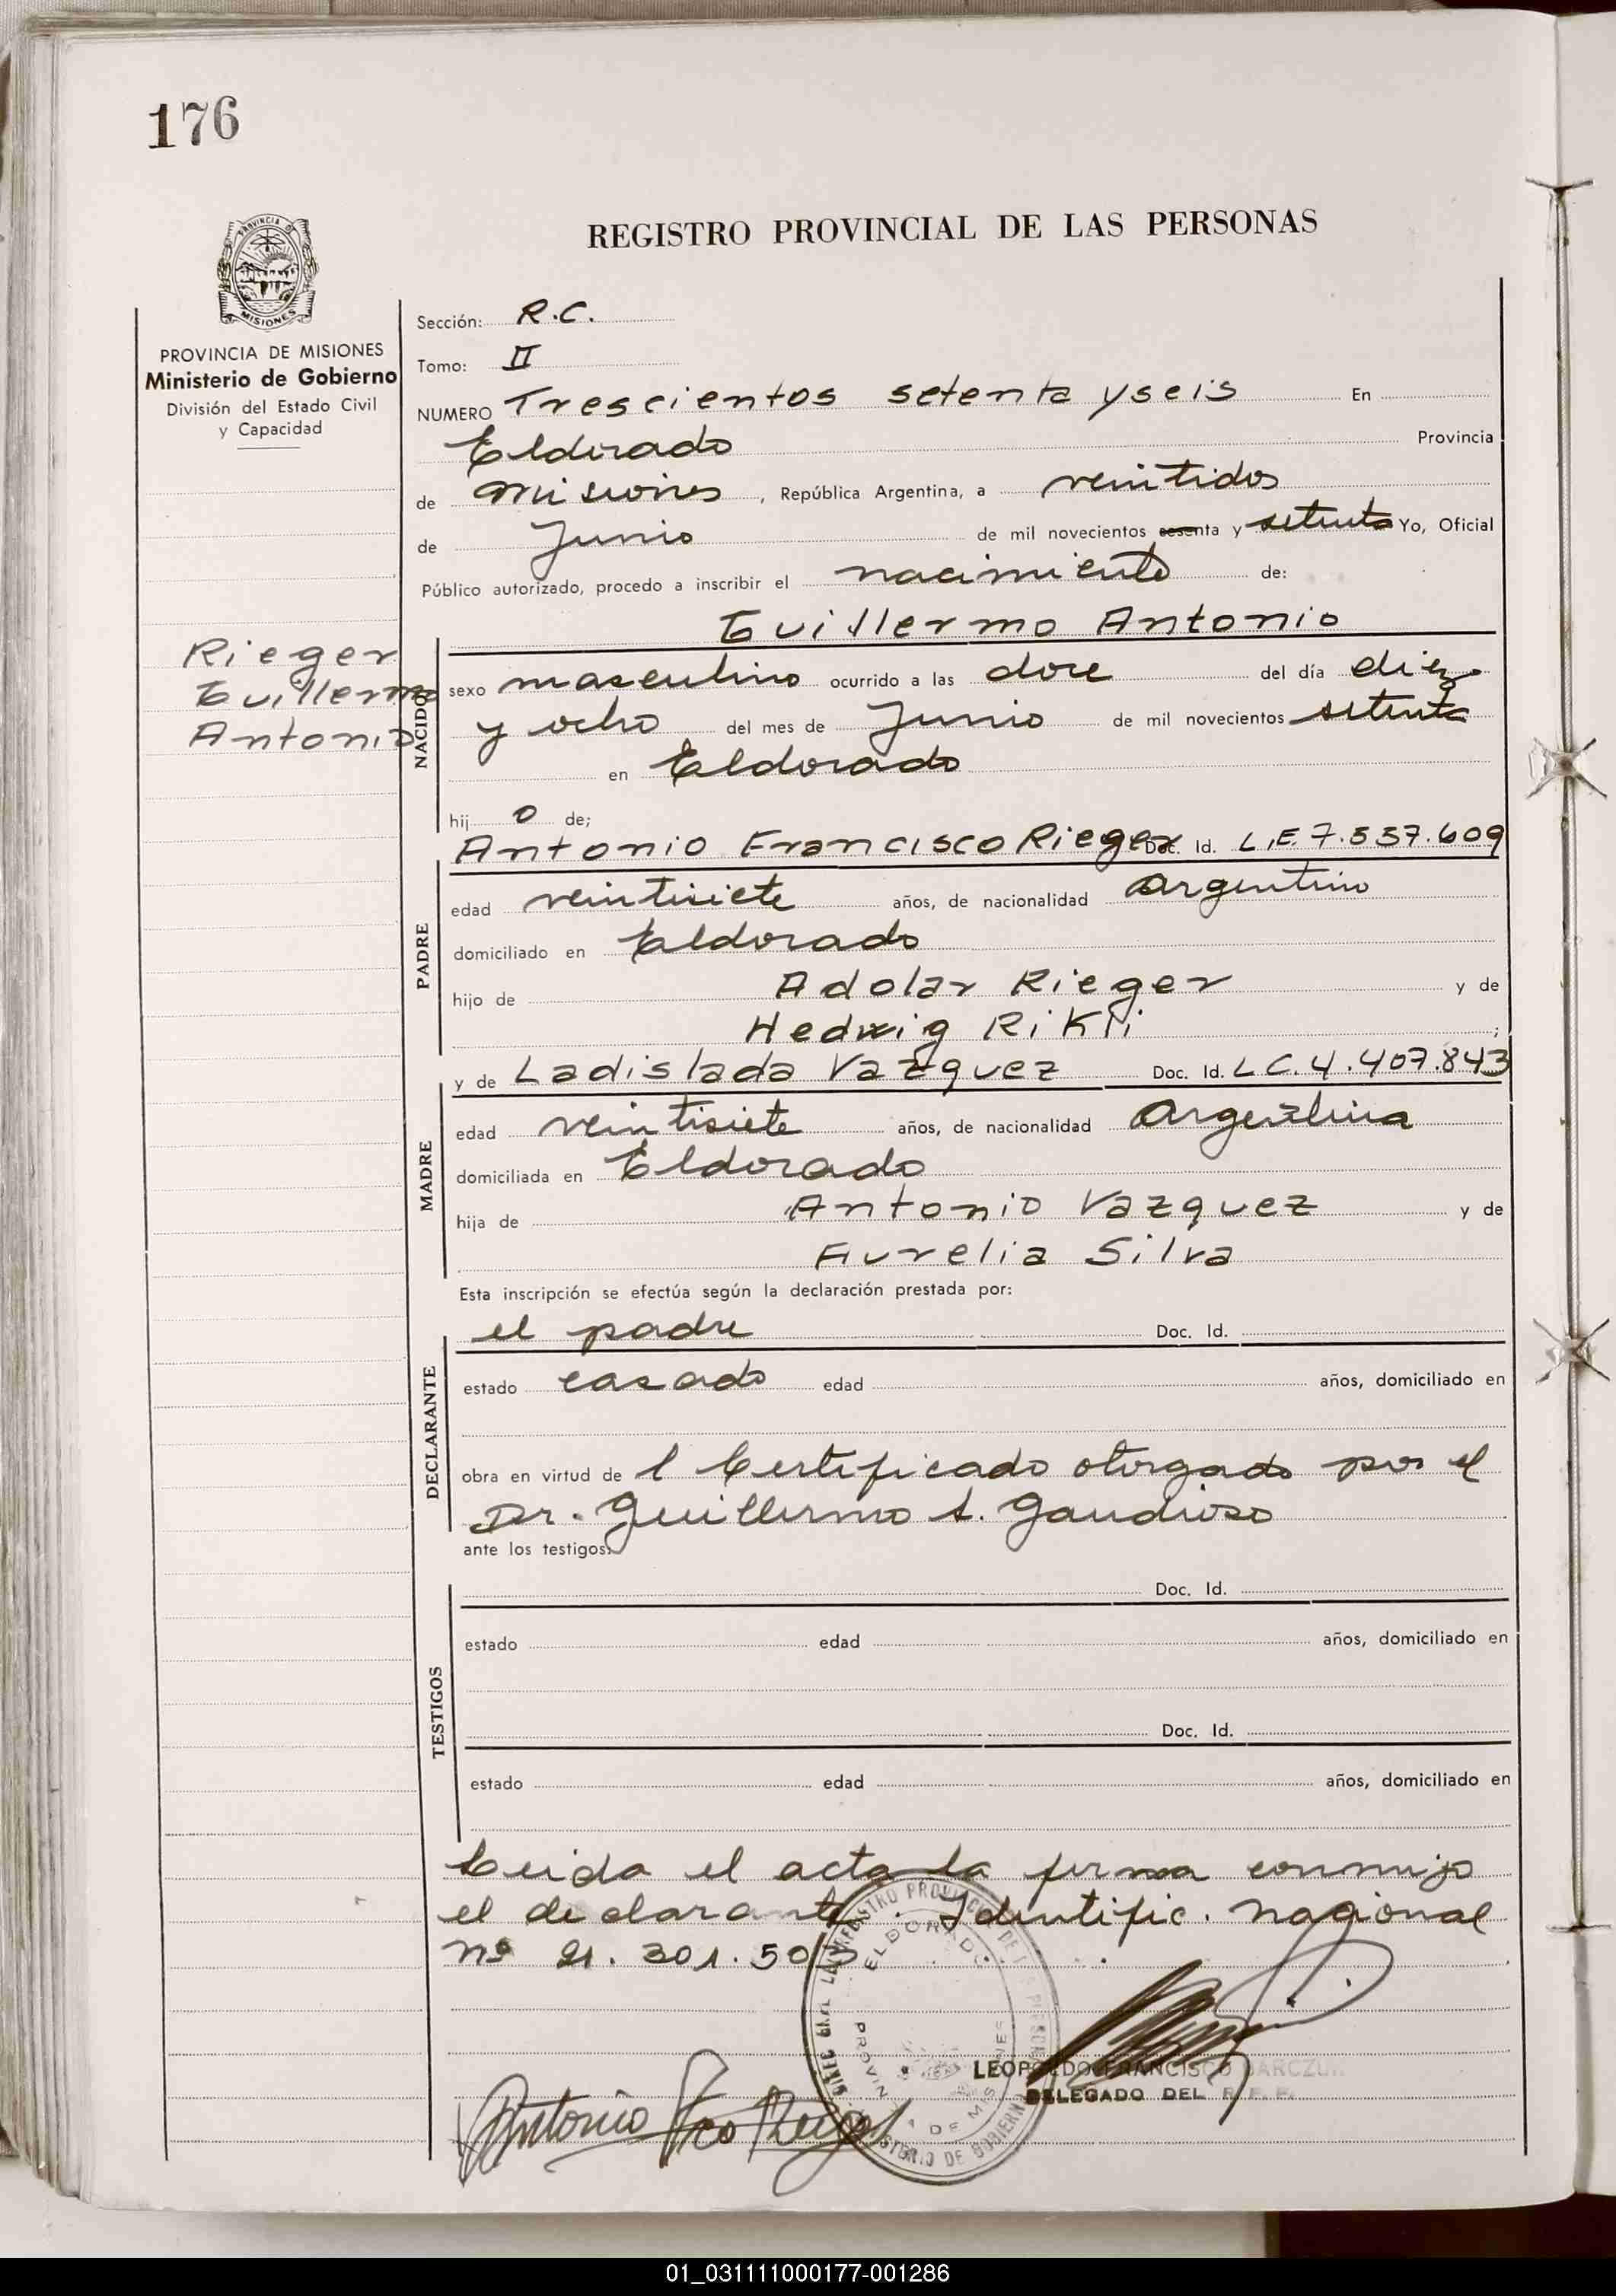 176
REGISTRO PROVINCIAL DE LAS PERSONAS
PROVINCIA
MISIONES
PROVINCIA DE MISIONES
Ministerio de Gobierno
División del Estado Civil
y Capacidad
Rieger
Guillermo
Antonio
Sección: R.C.
Tomo: II
NUMERO Trescientos setenta y seis En
Eldorado Provincia
de Misiones, República Argentina, a veintidos
de Junio de mil novecientos sesenta y setenta Yo, Oficial
Público autorizado, procedo a inscribir el nacimiento de:
Guillermo Antonio
NACIDO
sexo masculino ocurrido a las doce del día diez
y ocho del mes de Junio de mil novecientos setenta
en Eldorado
hij o de;
Antonio Francisco Rieger Doc. Id. L.E. 7.557.609
PADRE
edad veintisiete años, de nacionalidad Argentino
domiciliado en Eldorado
hijo de Adolar Rieger y de
Hedwig Rikli;
y de Ladislada Vazquez Doc. Id. L.C. 4.407.843
MADRE
edad veintisiete años, de nacionalidad Argentina
domiciliada en Eldorado
hija de Antonio Vazquez y de
Aurelia Silva
Esta inscripción se efectúa según la declaración prestada por:
el padre Doc. Id.
DECLARANTE
estado casado edad años, domiciliado en
obra en virtud de l Certificado otorgado por el
Dr. Guillermo A. Gaudioso
ante los testigos:
Doc. Id.
TESTIGOS
estado edad años, domiciliado en
Doc. Id.
estado edad años, domiciliado en
Leida el acta la firma conmigo
el declarante. Identific. nacional
nº 21.301.503
REGISTRO PROVINCIAL DE LAS PERSONAS
ELDORADO
PROVINCIA DE MISIONES
MINISTERIO DE GOBIERNO
LEOPOLDO FRANCISCO
DELEGADO DEL
Antonio Fco Rieger
01_031111000177-001286